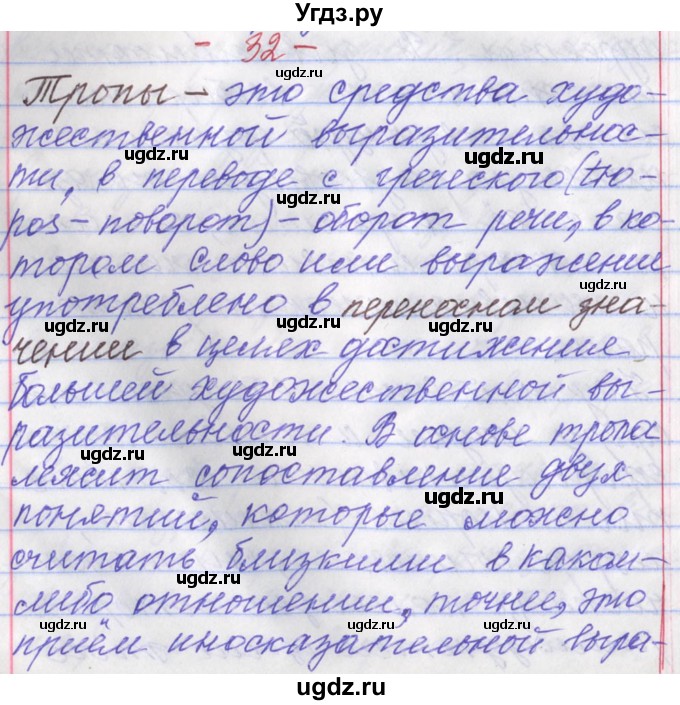 Угдз.ру
- 32 -
Тропы – это средства худо-
жественной выразительнос-
ти, в переводе с греческого (tro-
pos – поворот) – оборот речи, в ко-
тором слово или выражение
употреблено в переносном зна-
чении в целях достижения
большей художественной вы-
разительности. В основе тропа
лежит сопоставление двух
понятий, которые можно
считать близкими в каком-
либо отношении, точнее, это
приём иносказательной выра-
ugdz.ru